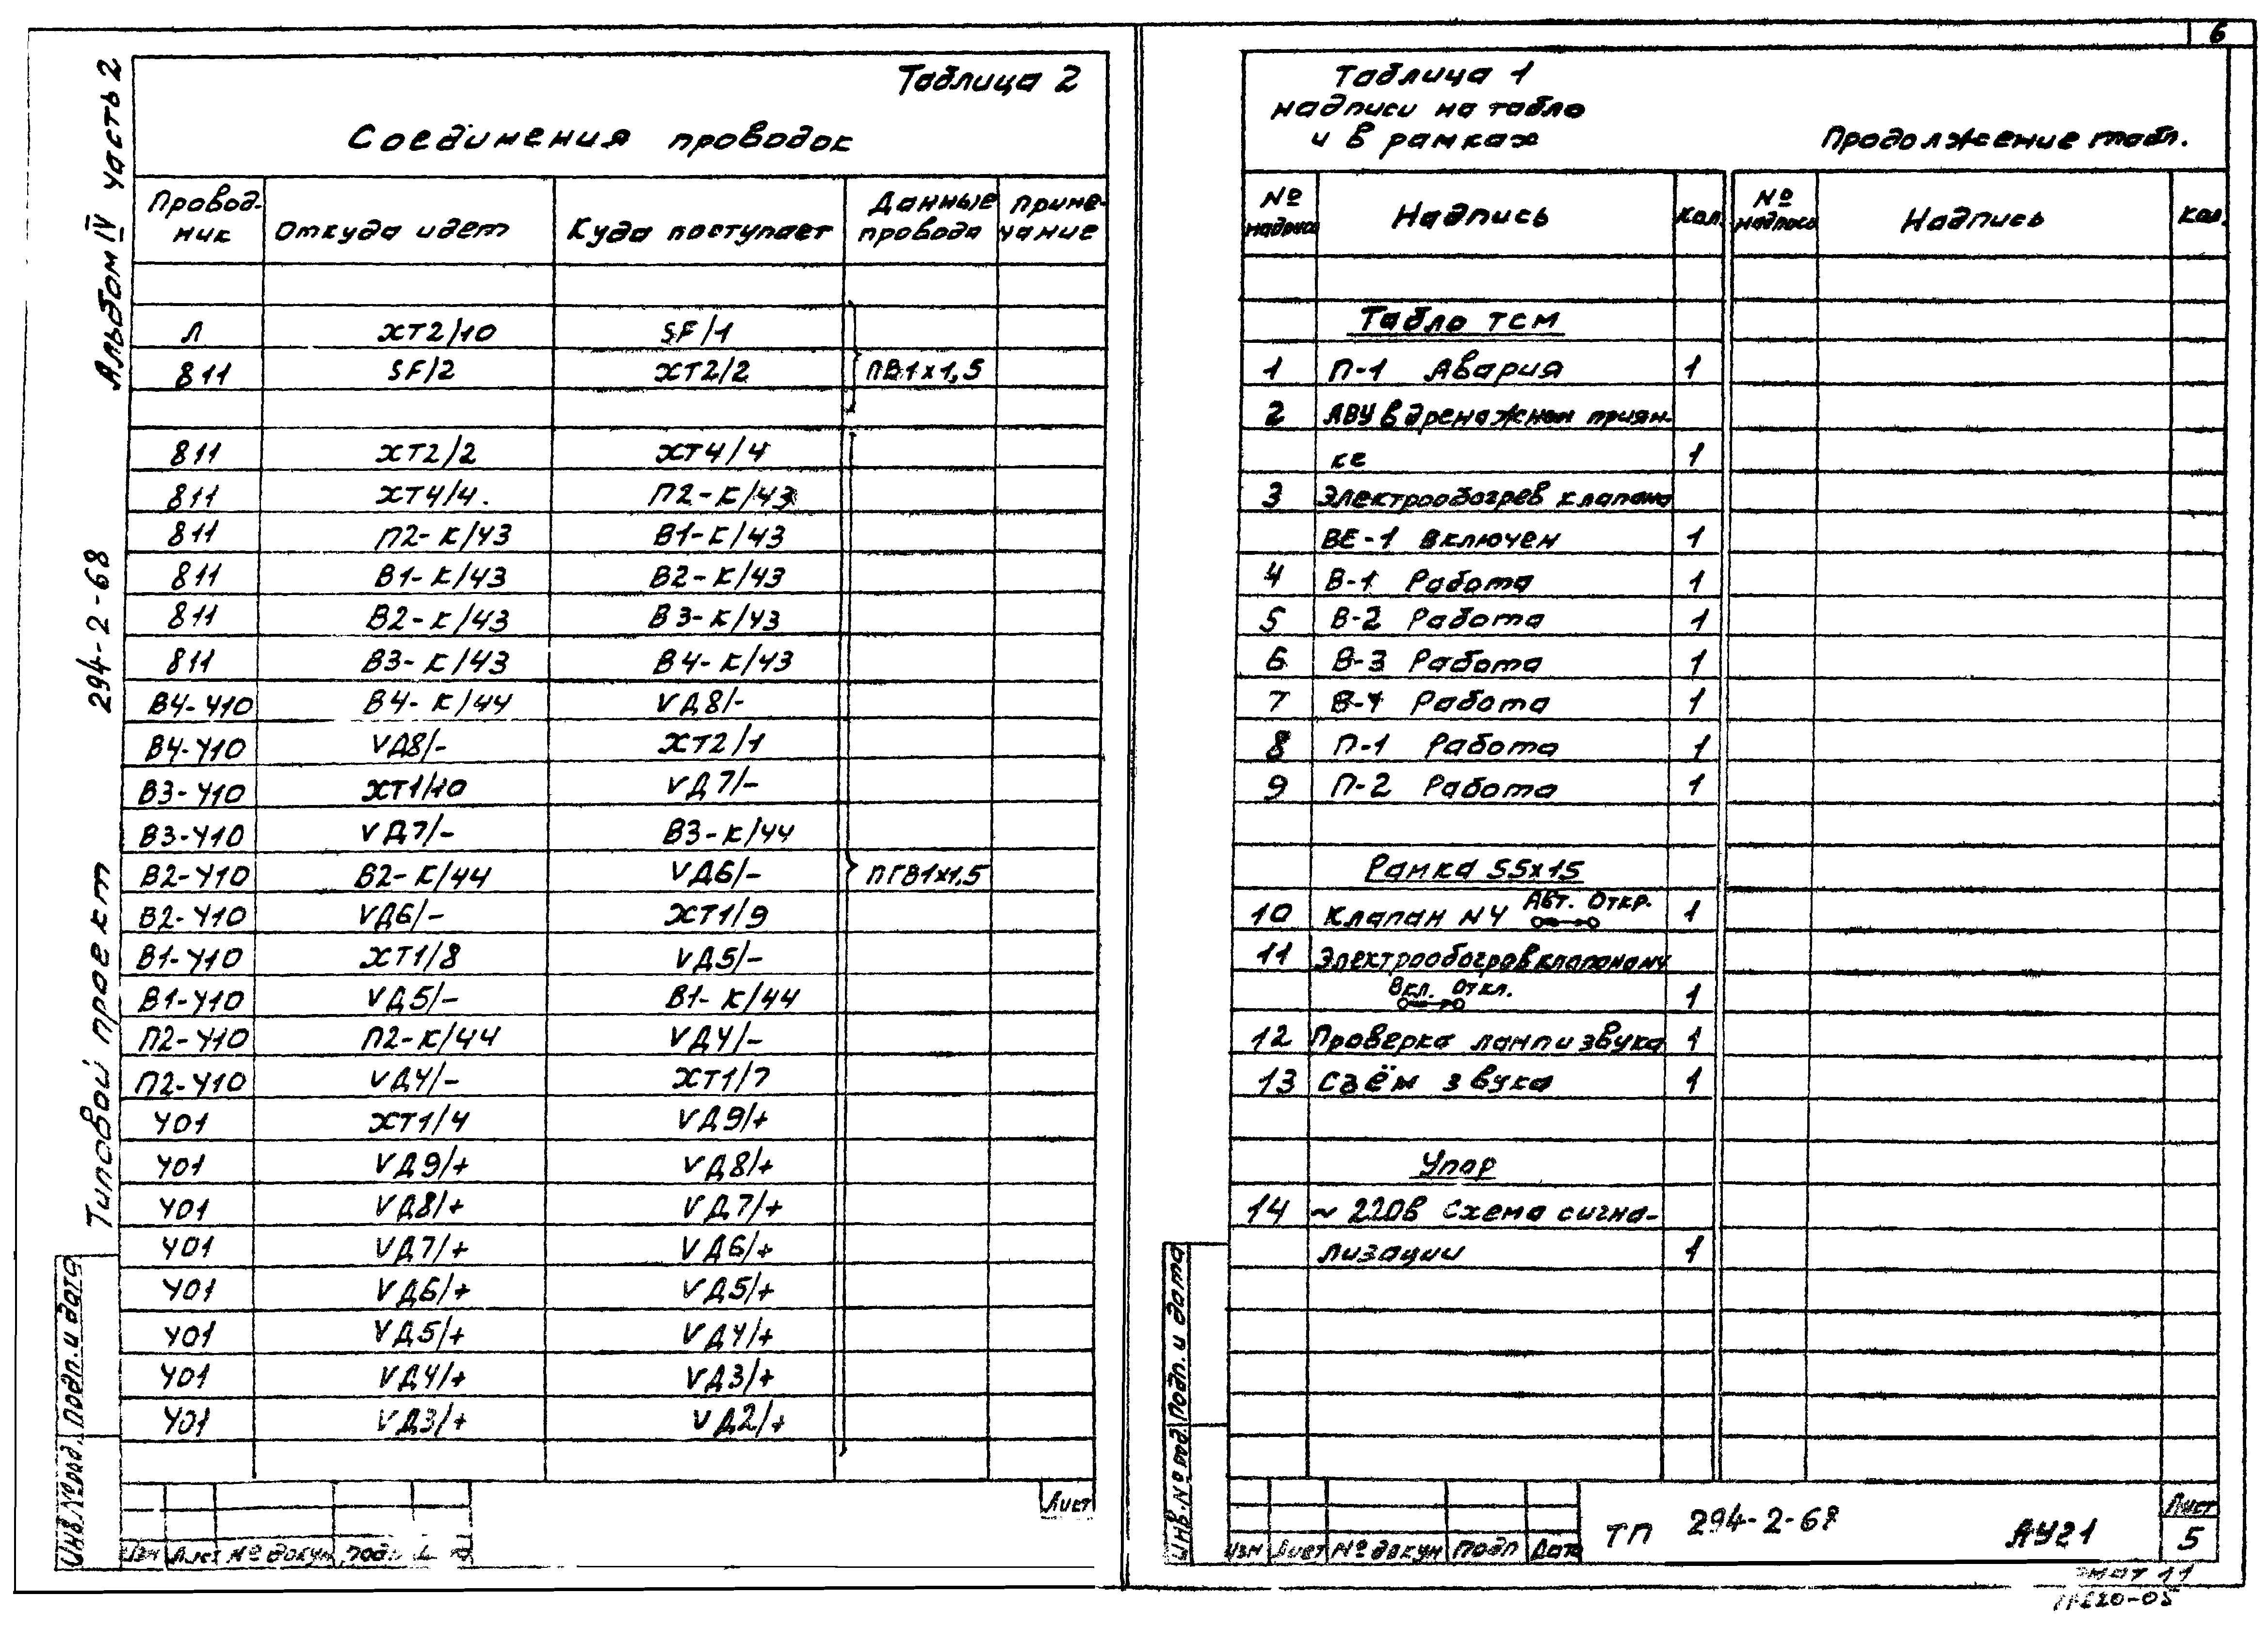 6
Альбом IV часть 2
294-2-68
Типовой проект
Таблица 2
Соединения проводок
Провод-ник | Откуда идет | Куда поступает | Данные провода | Приме-чание
Л | ХТ2/10 | SF/1
811 | SF/2 | ХТ2/2 | ПВ1х1,5
811 | ХТ2/2 | ХТ4/4
811 | ХТ4/4. | П2-К/43
811 | П2-К/43 | В1-К/43
811 | В1-К/43 | В2-К/43
811 | В2-К/43 | В3-К/43
811 | В3-К/43 | В4-К/43
В4-410 | В4-К/44 | VД8/-
В4-410 | VД8/- | ХТ2/1
В3-410 | ХТ1/10 | VД7/-
В3-410 | VД7/- | В3-К/44
В2-410 | В2-К/44 | VД6/- | ПГВ1х1,5
В2-410 | VД6/- | ХТ1/9
В1-410 | ХТ1/8 | VД5/-
В1-410 | VД5/- | В1-К/44
П2-410 | П2-К/44 | VД4/-
П2-410 | VД4/- | ХТ1/7
401 | ХТ1/4 | VД9/+
401 | VД9/+ | VД8/+
401 | VД8/+ | VД7/+
401 | VД7/+ | VД6/+
401 | VД6/+ | VД5/+
401 | VД5/+ | VД4/+
401 | VД4/+ | VД3/+
401 | VД3/+ | VД2/+
Инв.№ подл. Подп. и дата
Изм Лист № докум Подп
Лист
Таблица 1
надписи на табло
и в рамках
Продолжение табл.
№ надписи | Надпись | Кол. | № надписи | Надпись | Кол.
Табло ТСМ
1 | П-1 Авария | 1
2 | АВУ в дренажном приям-
ке | 1
3 | Электрообогрев клапана
ВЕ-1 включен | 1
4 | В-1 Работа | 1
5 | В-2 Работа | 1
6 | В-3 Работа | 1
7 | В-4 Работа | 1
8 | П-1 Работа | 1
9 | П-2 Работа | 1
Рамка 55х15
10 | Клапан N4 Авт. Откр. | 1
11 | Электрообогрев клапана N4
Вкл. Откл. | 1
12 | Проверка ламп и звука | 1
13 | Съём звука | 1
Упор
14 | ~ 220в Схема сигна-
лизации | 1
Инв.№ подл. Подп. и дата
Изм Лист № докум Подп Дата
ТП 294-2-68 АУ21
Лист
5